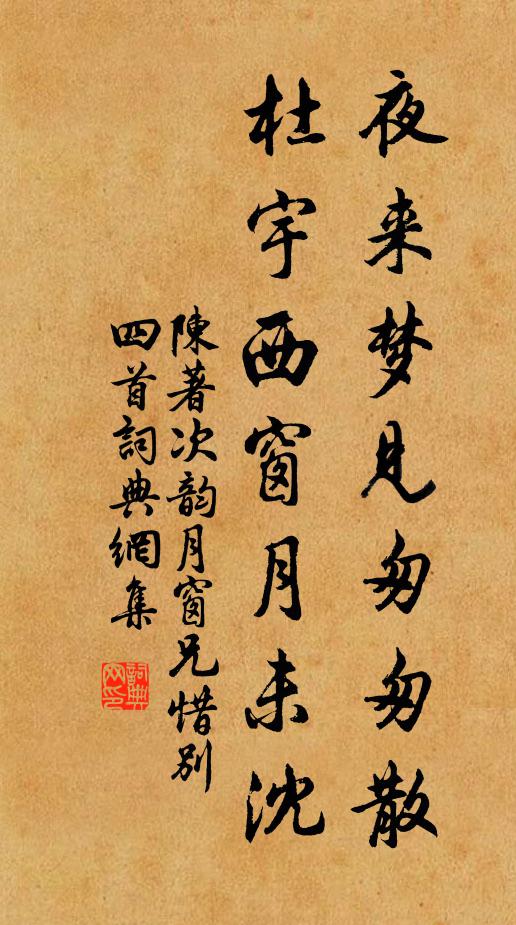 夜来梦見匆匆散
杜宇西窗月未沈
陳著次韵月窗兄惜別
四首詞典網集
詞典
网印